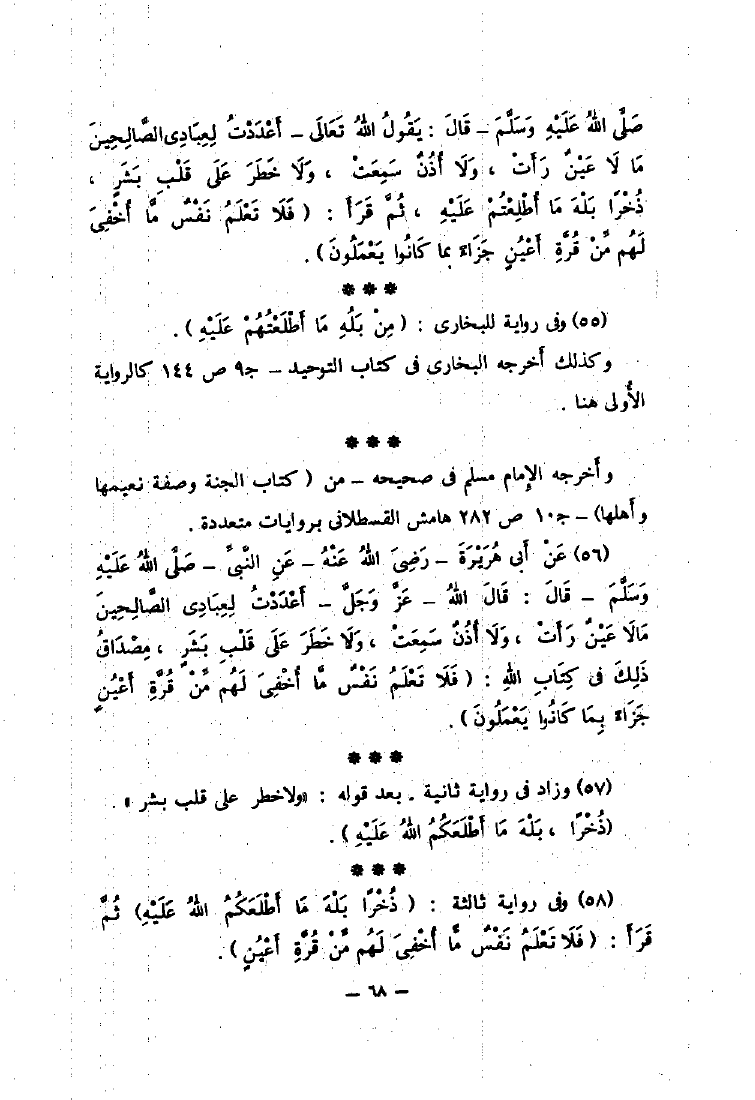 صَلَّى اللهُ عَلَيْهِ وَسَلَّمَ – قَالَ : يَقُولُ اللهُ تَعَالَى – أَعْدَدْتُ لِعِبَادِى الصَّالِحِينَ
مَا لَا عَيْنٌ رَأَتْ ، وَلَا أُذُنٌ سَمِعَتْ ، وَلَا خَطَرَ عَلَى قَلْبِ بَشَرٍ ،
ذُخْرًا بَلْهَ مَا أُطْلِعْتُمْ عَلَيْهِ ، ثُمَّ قَرَأَ : ( فَلَا تَعْلَمُ نَفْسٌ مَّا أُخْفِىَ
لَهُم مِّنْ قُرَّةِ أَعْيُنٍ جَزَاءً بِمَا كَانُوا يَعْمَلُونَ ) .
* * *
(٥٥) وفى رواية للبخارى : ( مِنْ بَلْهِ مَا أَطْلَعْتُهُمْ عَلَيْهِ ) .
وكذلك أخرجه البخارى فى كتاب التوحيد – جـ٩ ص ١٤٤ كالرواية
الأُولى هنا .
* * *
وأخرجه الإمام مسلم فى صحيحه – من ( كتاب الجنة وصفة نعيمها
وأهلها) – جـ١٠ ص ٢٨٢ هامش القسطلانى بروايات متعددة .
(٥٦) عَنْ أَبِى هُرَيْرَةَ – رَضِىَ اللهُ عَنْهُ – عَنِ النَّبِىِّ – صَلَّى اللهُ عَلَيْهِ
وَسَلَّمَ – قَالَ : قَالَ اللهُ – عَزَّ وَجَلَّ – أَعْدَدْتُ لِعِبَادِى الصَّالِحِينَ
مَالَا عَيْنٌ رَأَتْ ، وَلَا أُذُنٌ سَمِعَتْ ، وَلَا خَطَرَ عَلَى قَلْبِ بَشَرٍ ، مِصْدَاقُ
ذَلِكَ فى كِتَابِ اللهِ : ( فَلَا تَعْلَمُ نَفْسٌ مَّا أُخْفِىَ لَهُم مِّنْ قُرَّةِ أَعْيُنٍ
جَزَاءً بِمَا كَانُوا يَعْمَلُونَ ) .
* * *
(٥٧) وزاد فى رواية ثانية . بعد قوله : «ولاخطر على قلب بشر » .
(ذُخْرًا ، بَلْهَ مَا أَطْلَعَكُمُ اللهُ عَلَيْهِ ) .
* * *
(٥٨) وفى رواية ثالثة : ( ذُخْرًا بَلْهَ مَا أَطْلَعَكُمُ اللهُ عَلَيْهِ) ثُمَّ
قَرَأَ : ( فَلَا تَعْلَمُ نَفْسٌ مَّا أُخْفِىَ لَهُم مِّنْ قُرَّةِ أَعْيُنٍ ) .
– ٦٨ –